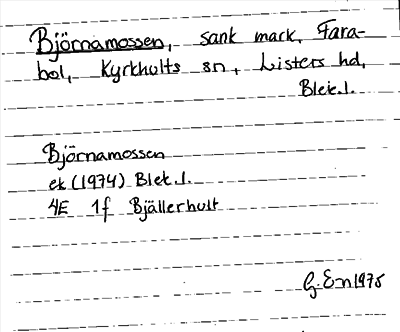 Björnamossen, sank mark, Fara-
bol, Kyrkhults sn, Listers hd,
Blek.l.
Björnamossen
ek (1974) Blek.l.
4E 1f Bjällerhult
G. E-n 1975